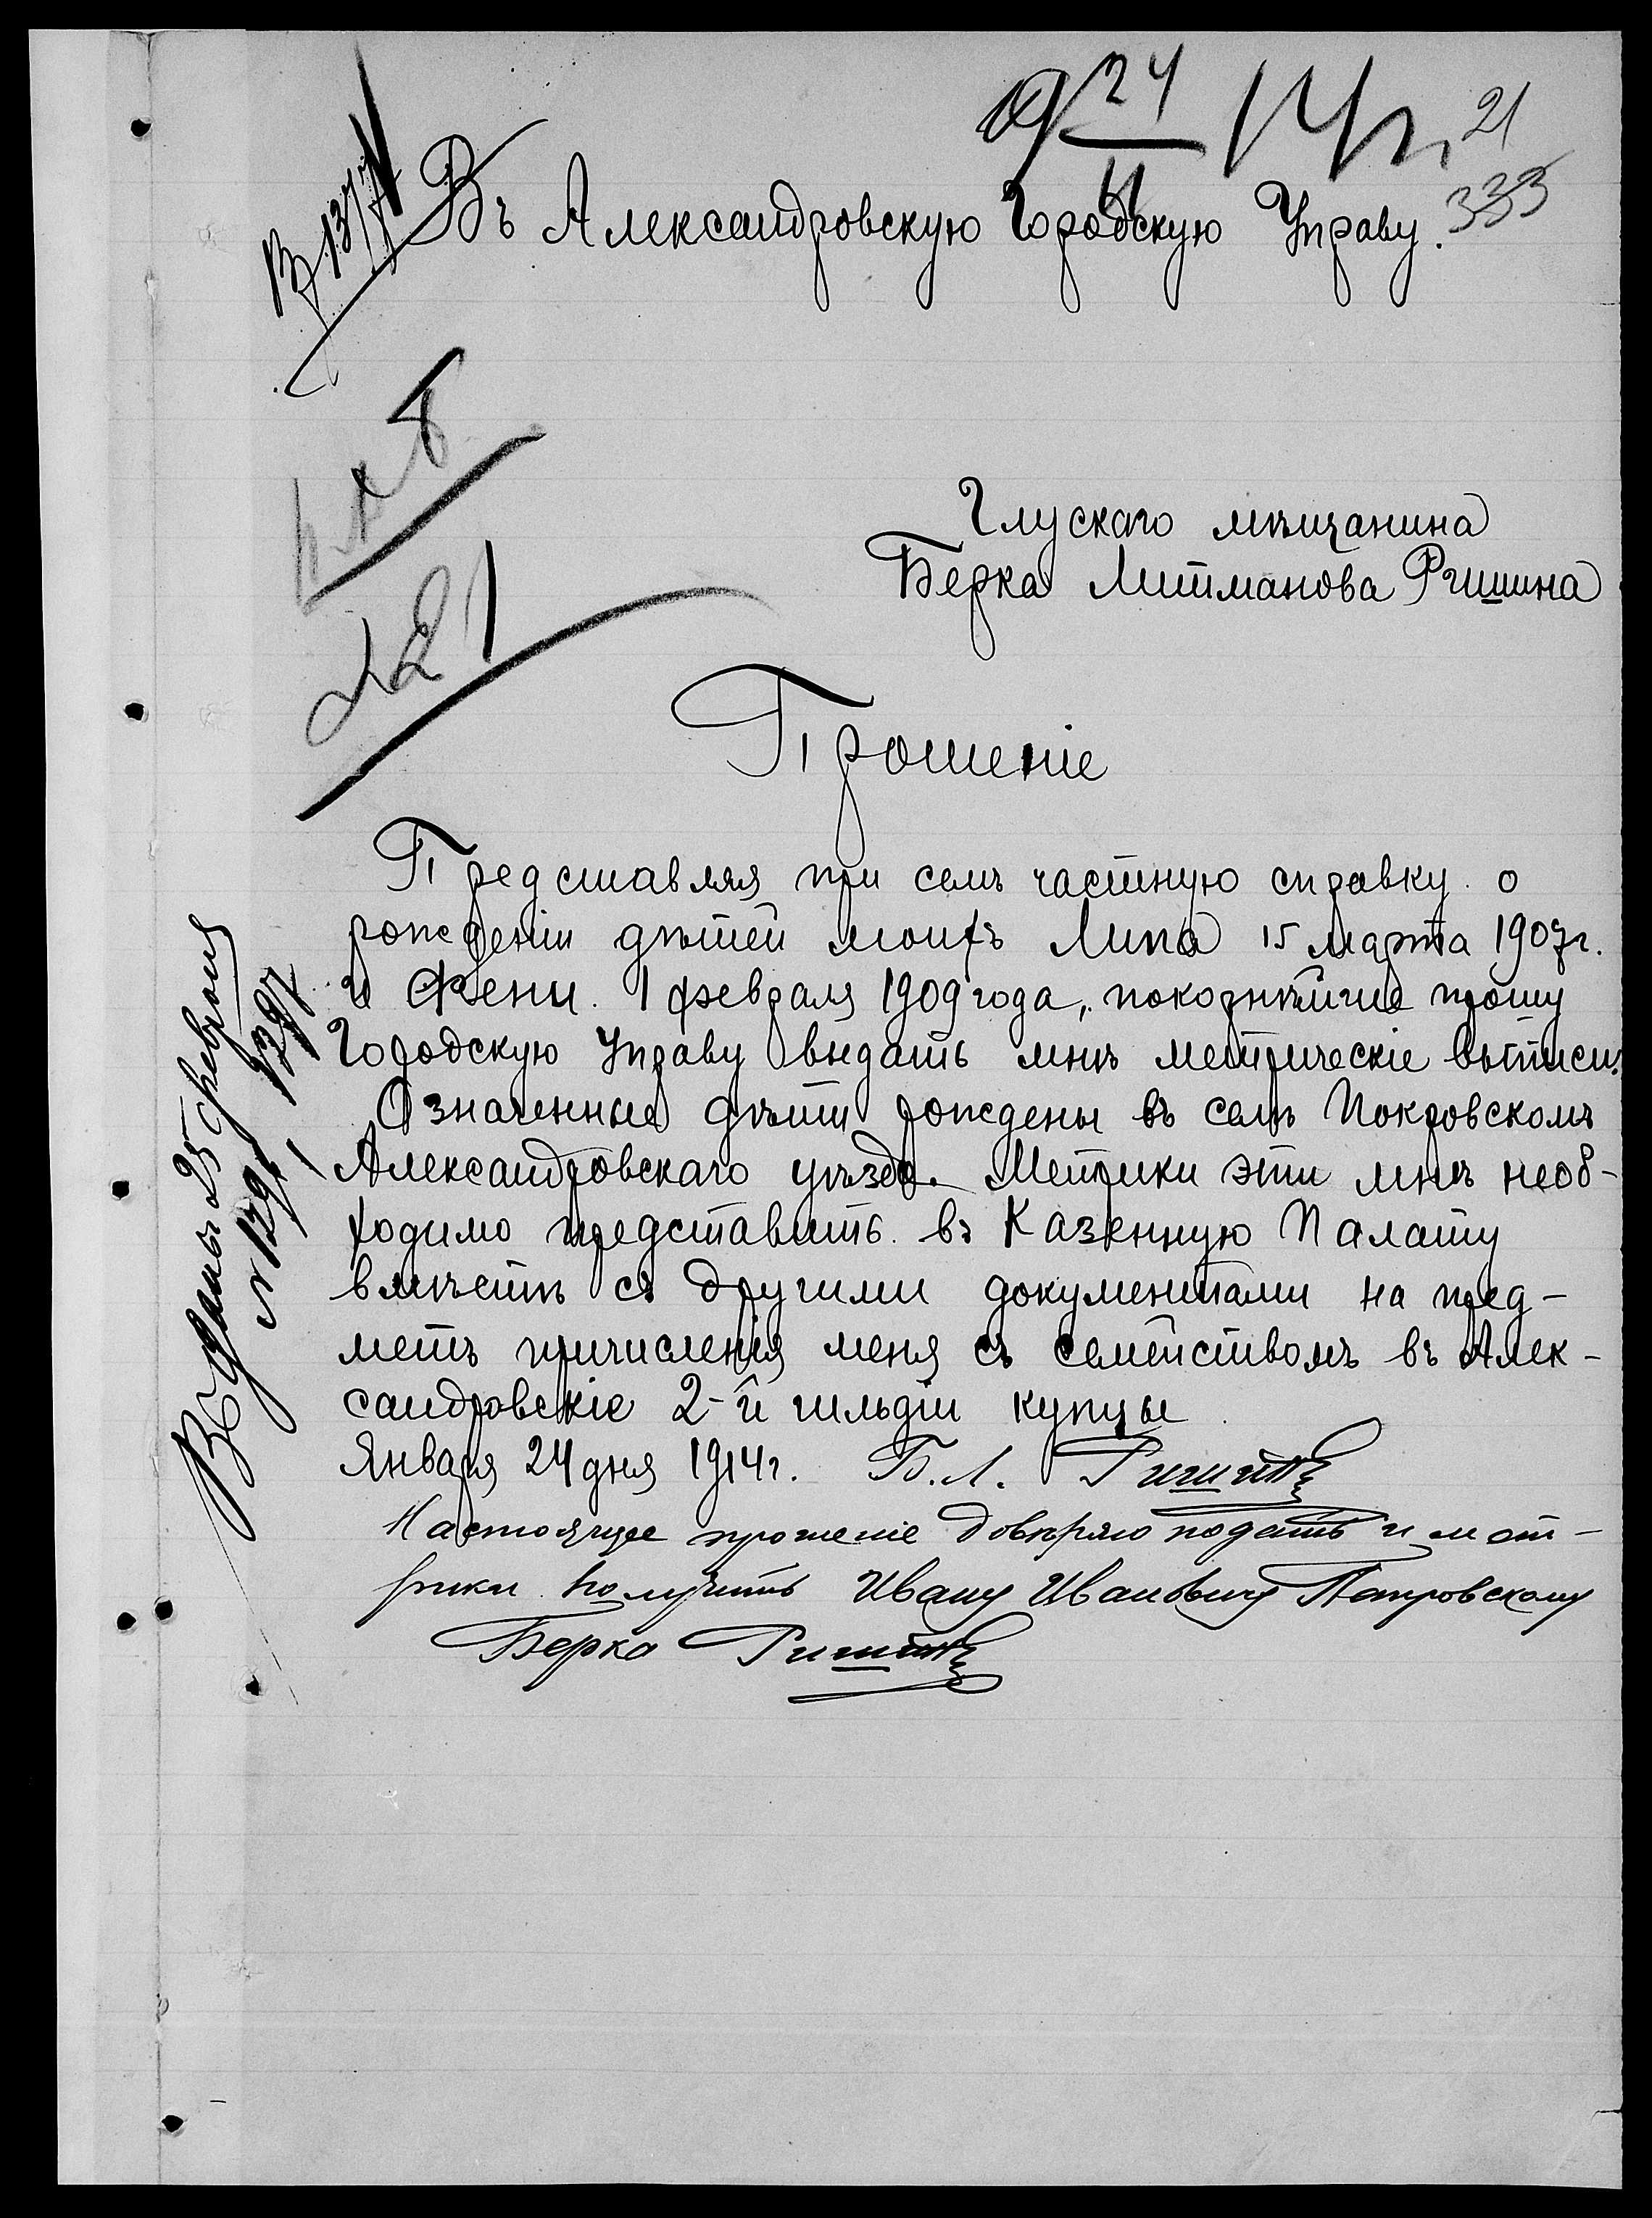 24
21
333
Въ Александровскую Городскую Управу.
Глускаго мѣщанина
Берка Литманова Ригшина
Прошеніе
Представляя при семъ частную справку о
рожденіи дѣтей моихъ Липа 15 марта 1907г.
и Фени 1 февраля 1909 года, покорнѣйше прошу
Городскую Управу выдать мнѣ метрическіе выписи.
Означенные дѣти рождены въ селѣ Покровскомъ
Александровскаго уѣзда. Метрики эти мнѣ необ-
ходимо представить въ Казенную Палату
вмѣстѣ съ другими документами на пред-
метъ причисленія меня съ семействомъ въ Алек-
сандровскіе 2-й гильдіи купцы
Января 24 дня 1914г. Б. Л.
Настоящее прошеніе довѣряю подать и мет-
рики получить Ивану Ивановичу Петровскому
Берка
Выданы 25 февраля
№ 1291 1397